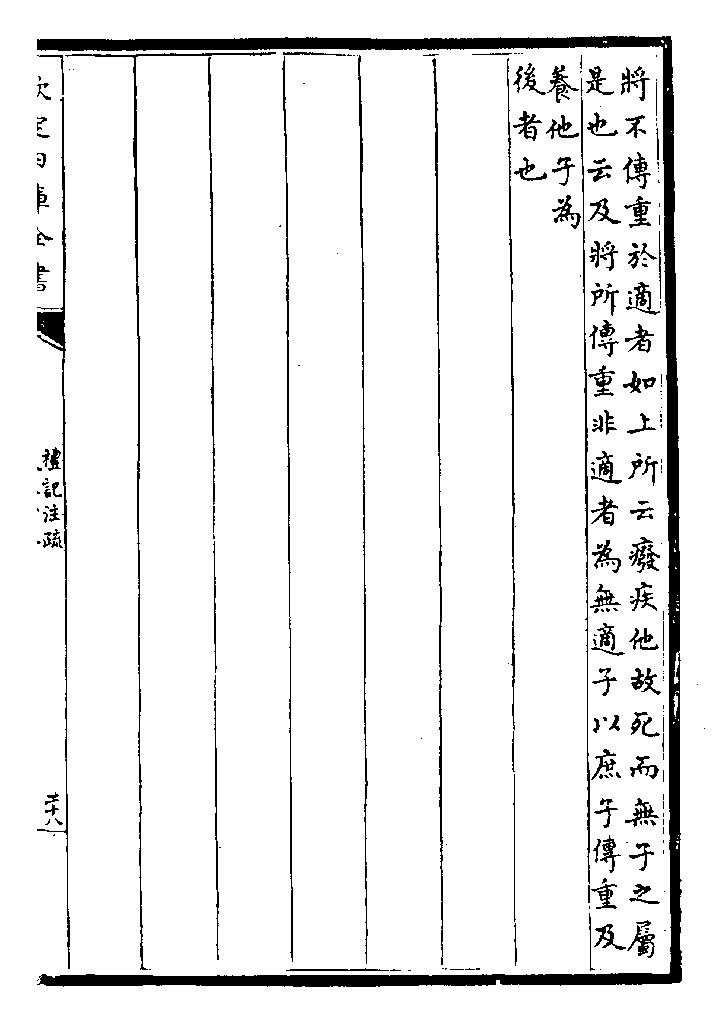 將不傳重於適者如上所云癈疾他故死而無子之屬
是也云及將所傳重非適者為無適子以庶子傳重及
養他子為
後者也
欽定四庫全書
禮記注疏
三十八